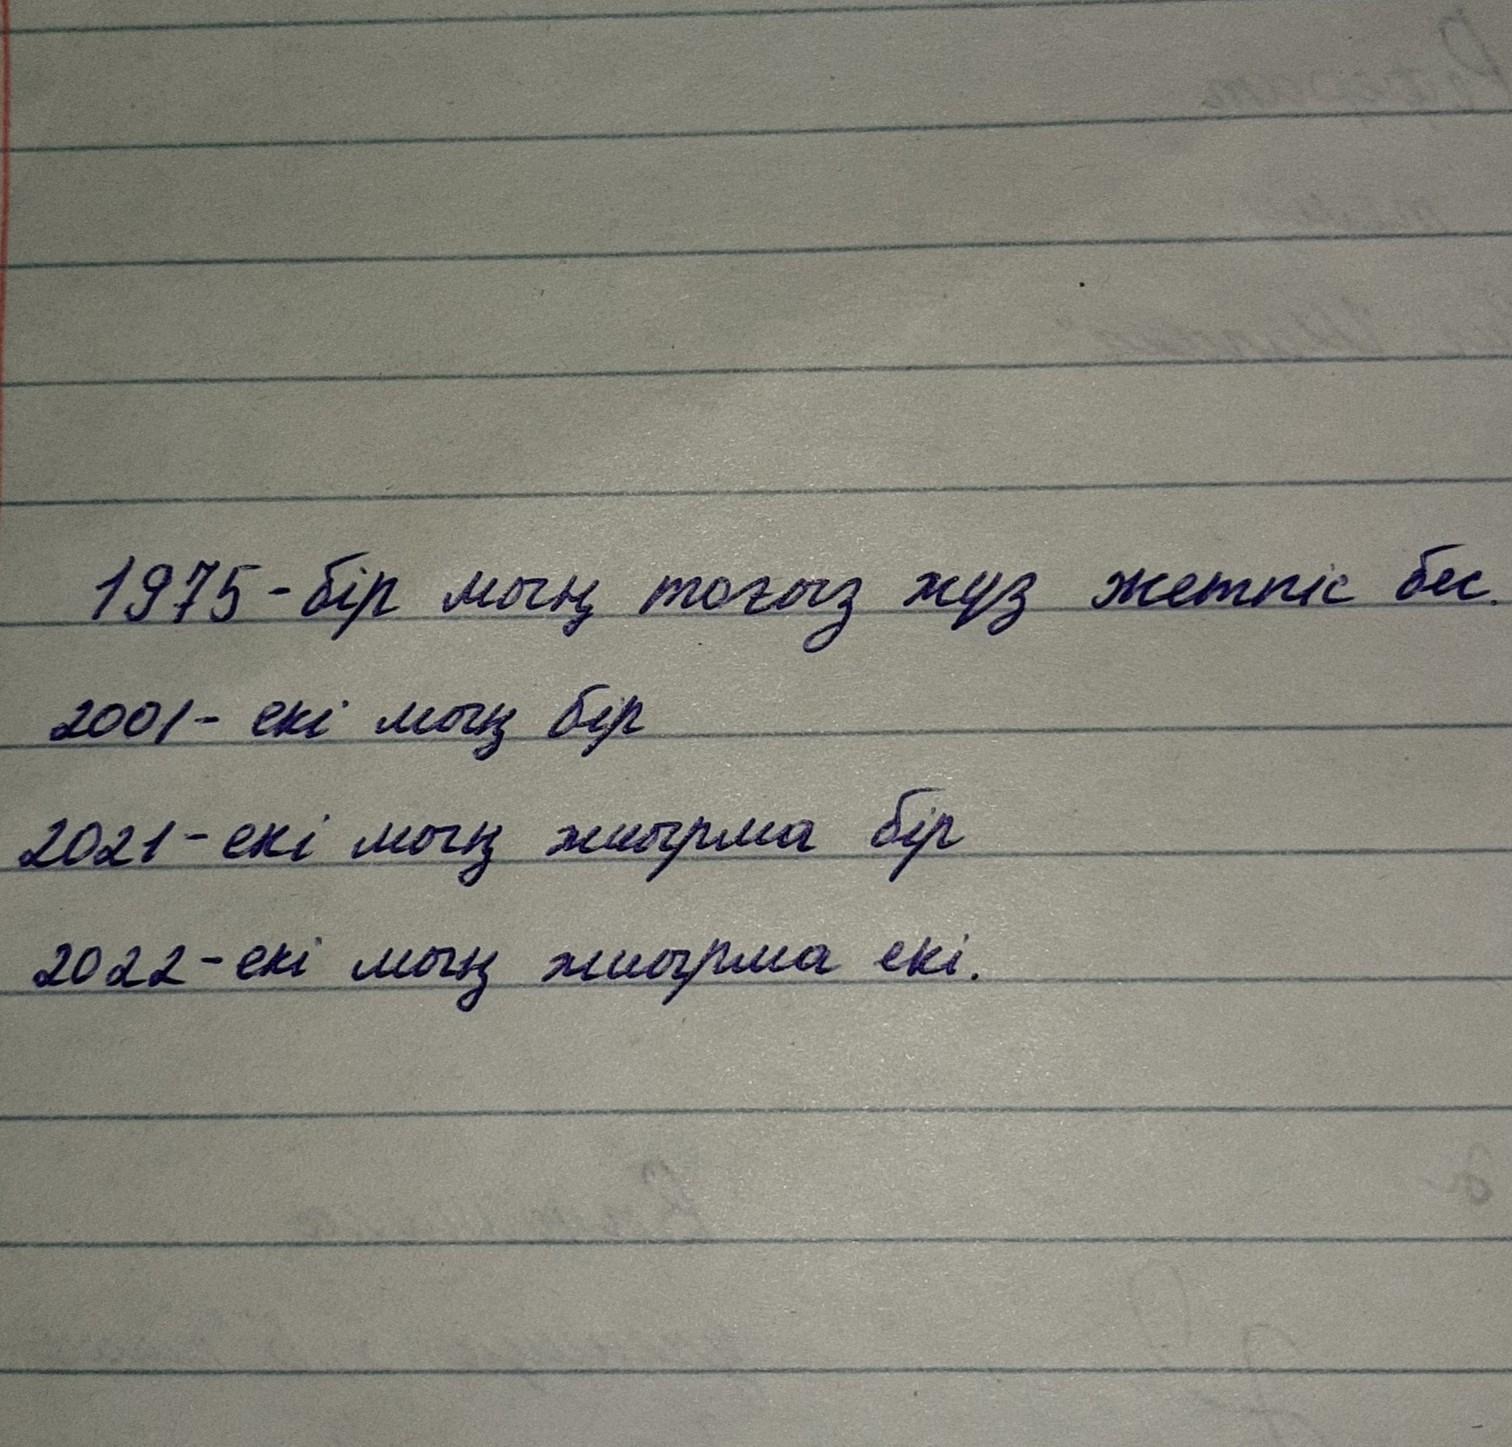 1975-бір мың тоғыз жүз жетпіс бес.
2001- екі мың бір
2021-екі мың жиырма бір
2022-екі мың жиырма екі.